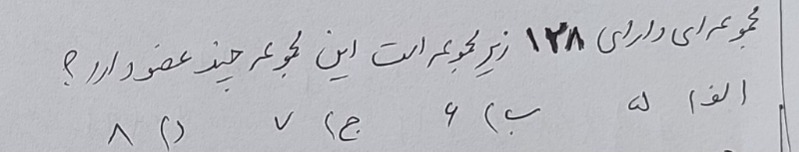 مجموعه‌ای دارای ۱۲۸ زیرمجموعه است این مجموعه چند عضو دارد؟
الف) ۵ ب) ۶ ج) ۷ د) ۸